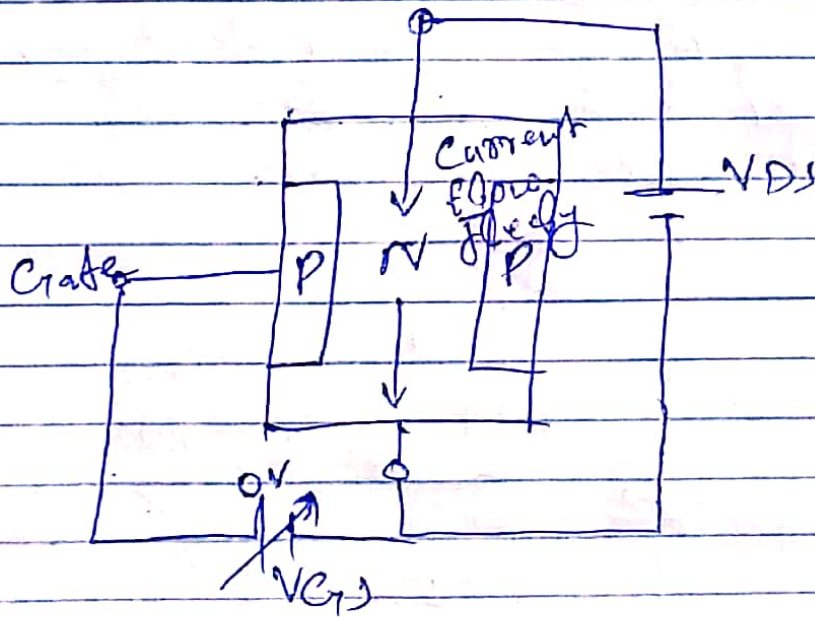 Current
flow
freely
VDS
Gate
P
N
P
0V
VGS